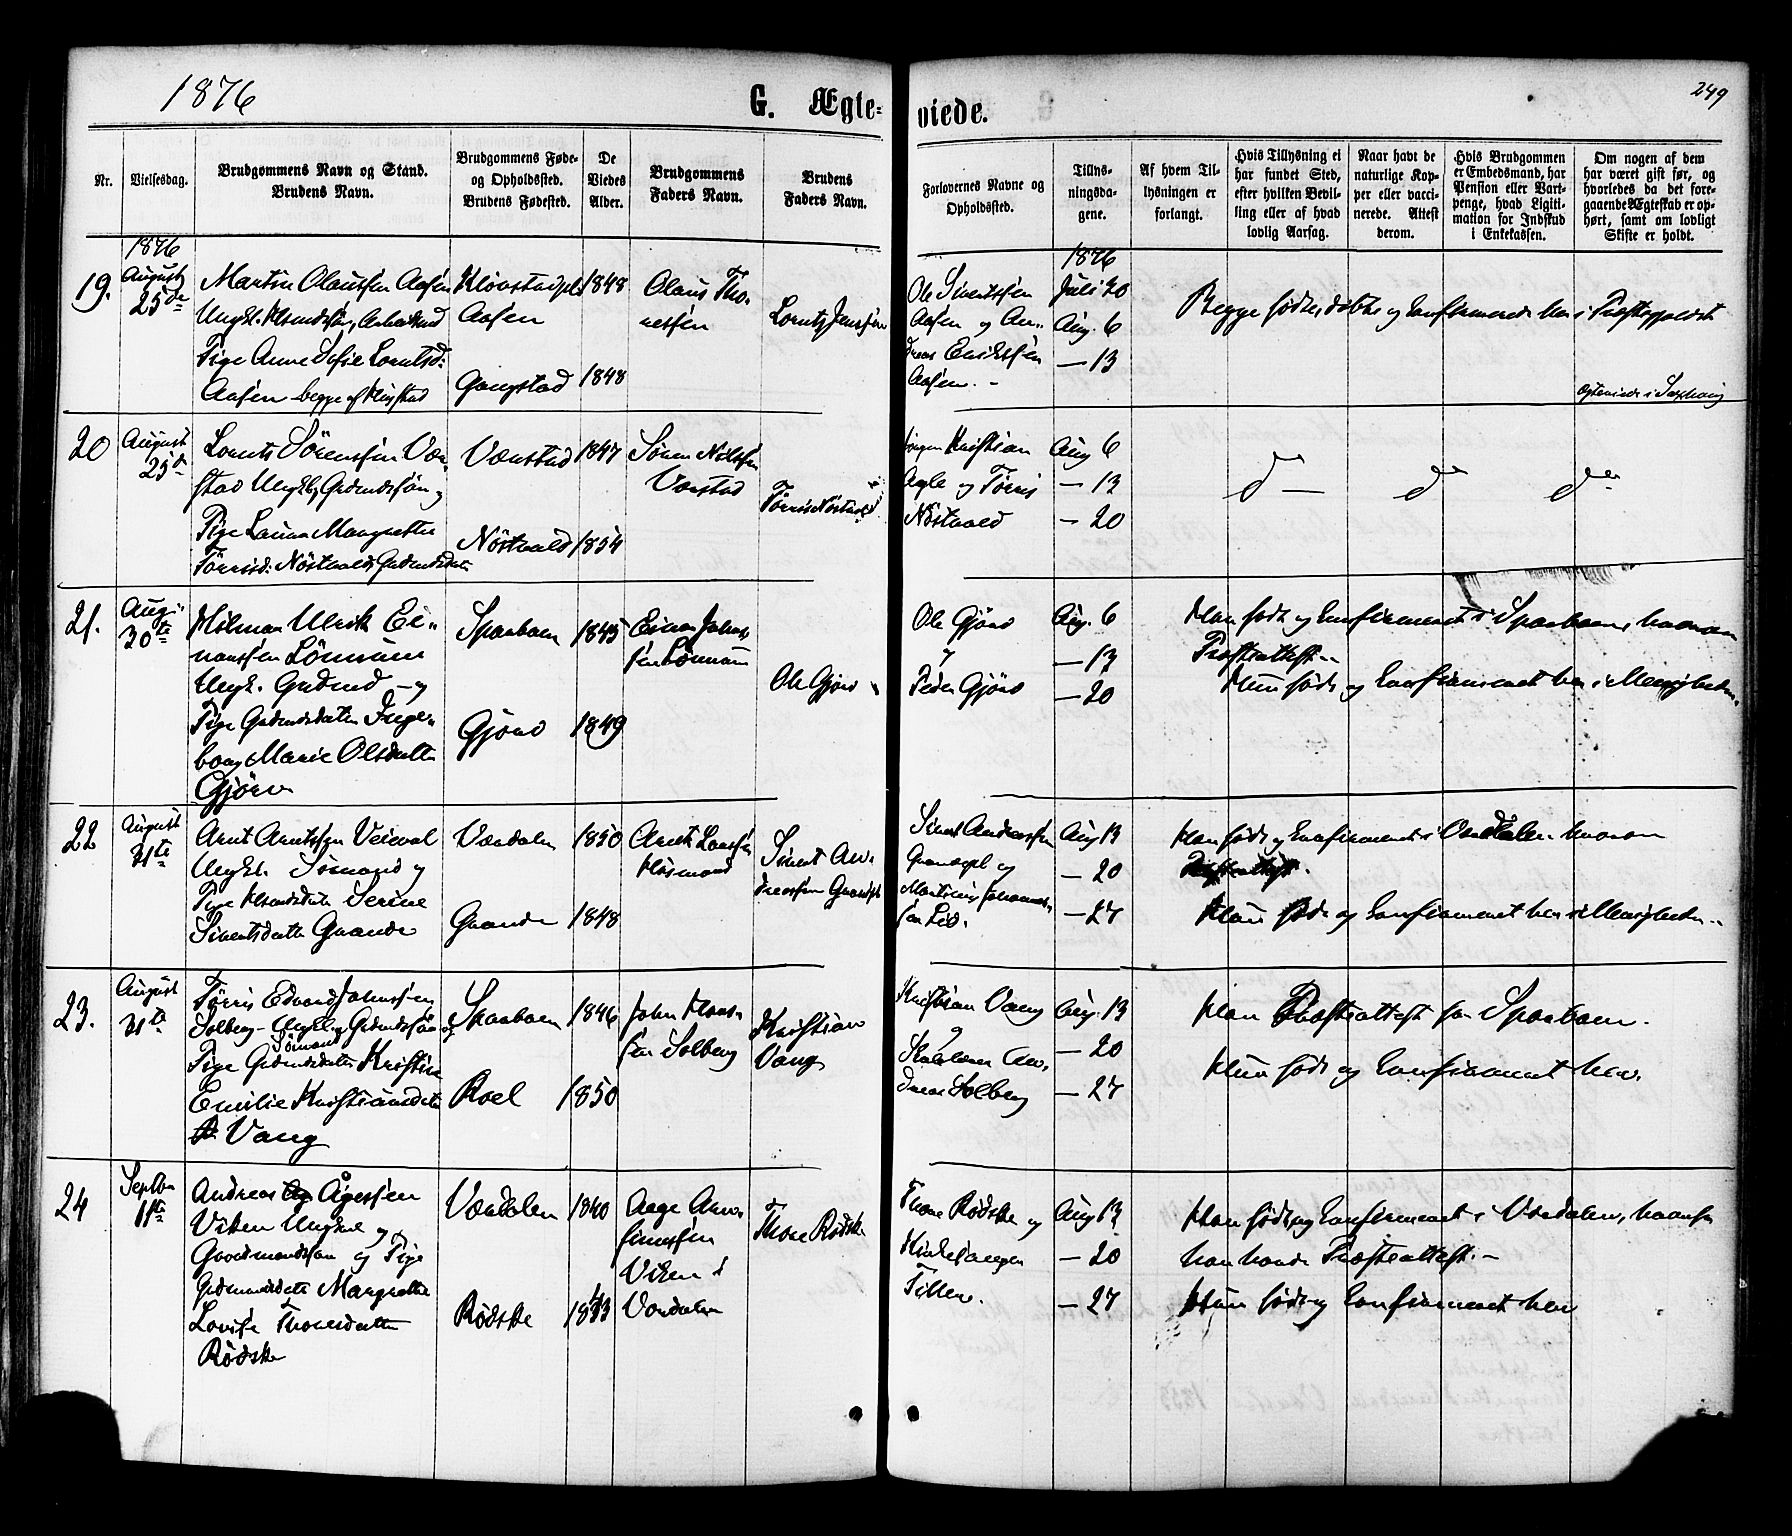 1876
G. Ægte-
viede.
249
Nr.
Vielsesdag.
Brudgommens Navn og Stand.
Brudens Navn.
Brudgommens Føde-
og Opholdssted.
Brudens Fødested.
De
Viedes
Alder.
Brudgommens
Faders Navn.
Brudens
Faders Navn.
Forlovernes Navne og
Opholdssted.
Tillys-
ningsda-
gene.
Af hvem Til-
lysningen er
forlangt.
Hvis Tillysning ei
har fundet Sted,
efter hvilken Bevil-
ling eller af hvad
lovlig Aarsag.
Naar havt de
naturlige Kop-
per eller vacci-
nerede. Attest
derom.
Hvis Brudgommen
er Embedsmand, har
Pension eller Vart-
penge, hvad Legiti-
mation for Indskud
i Enkekassen.
Om nogen af dem
har været gift før, og
hvorledes da det fore-
gaaende Ægteskab er op-
hørt, samt om lovligt
Skifte er holdt.
19.
1876
August
25de
Martin Olaussen Aasen
Ungk. Husmdsøn, Arbeidsmd
Pige Anne Sofie Lorntsd:
Aasen begge af
Aasen
Gangstad
1848
1848
Olaus Tho-
nessen
Lornts Jenssen
Ole Sivertssen
Aasen og An-
dreas Erikssen
Aasen. -
1876
Juli 30
Aug. 6
— 13
Begge fødte, døbte og konfirmerede her i Præstegjeldet
20
August
25d
Lornts Sørenssen Væ-
stad Ungk., Grdmdssøn og
Pige Laura Margrethe
Tørrisd: Nöstvold, Grdmdsdatr
Nöstvold
1847
1854
Sören Nilssen
Tørris Nöstvold
Kristian
Agle og Tørris
Nöstvold
Aug 6
— 13
— 20
d — d do
21.
Aug.
30te
Hilmar Ulrik Ei-
narssen Lönnum
Ungk. Grdmd — og
Pige Grdmdsdatter Inge-
borg Marie Olsdatter
Gjörv
Sparboen
Gjörv
1845
1849
Einar Johns-
sen Lönnum
Ole Gjörv
Ole Gjörv
og
Peder Gjörv
Aug. 6
— 13
— 20
Han født og konfirmeret i Sparboen, hvorom
Præsteattest. —
Hun født og konfirmeret her i Menigheden.
22
August
31te
Arnt Arntssen Veieval
Ungk. Sömand og
Pige Husmdsdatr Serine
Sivertsdatter Grande
Værdalen
Grande
1850
1848
Arnt Larssen
Husmand
Sivert An-
dreassen
Sivert Andreassen
og
Martinus Johannes-
sen Lid.
Aug 13
— 20
— 27
Han født og konfirmeret i Værdalen hvorom
Præsteattest.
Hun født og konfirmeret her i Menigheden. —
23.
August
31te
Tørris Edvard Johnssen
Solberg — Ungk., Grdmdssön og
Sömand
Pige Grdmdsdatter Kristine
Emilie Kristiansdatr
Vang
Sparboen
Roel
1846
1850
John Hans-
sen Solberg
Kristian
Vang
Kristian Vang
og
An-
dreas Solberg
Aug. 13
— 20
— 27
Han Præsteattest fra Sparboen.
Hun født og konfirmeret her.
24
Septbr
11te
Andreas Ågessen
Viken Ungkrl og
Gaardmandssøn og Pige
Grdmandsdatr Margrethe
Lovise Thoresdatter
Rødske
Værdalen
Rødske
1840
1843
Aage Arn-
finnssen
Viken i
Værdalen
Thore Rødske
Thore Rødske og
Tiller.
Aug 13
— 20
— 27
Han født og konfirmeret i Værdalen, hvorfra
han havde Præsteattest. —
Hun født og konfirmeret her